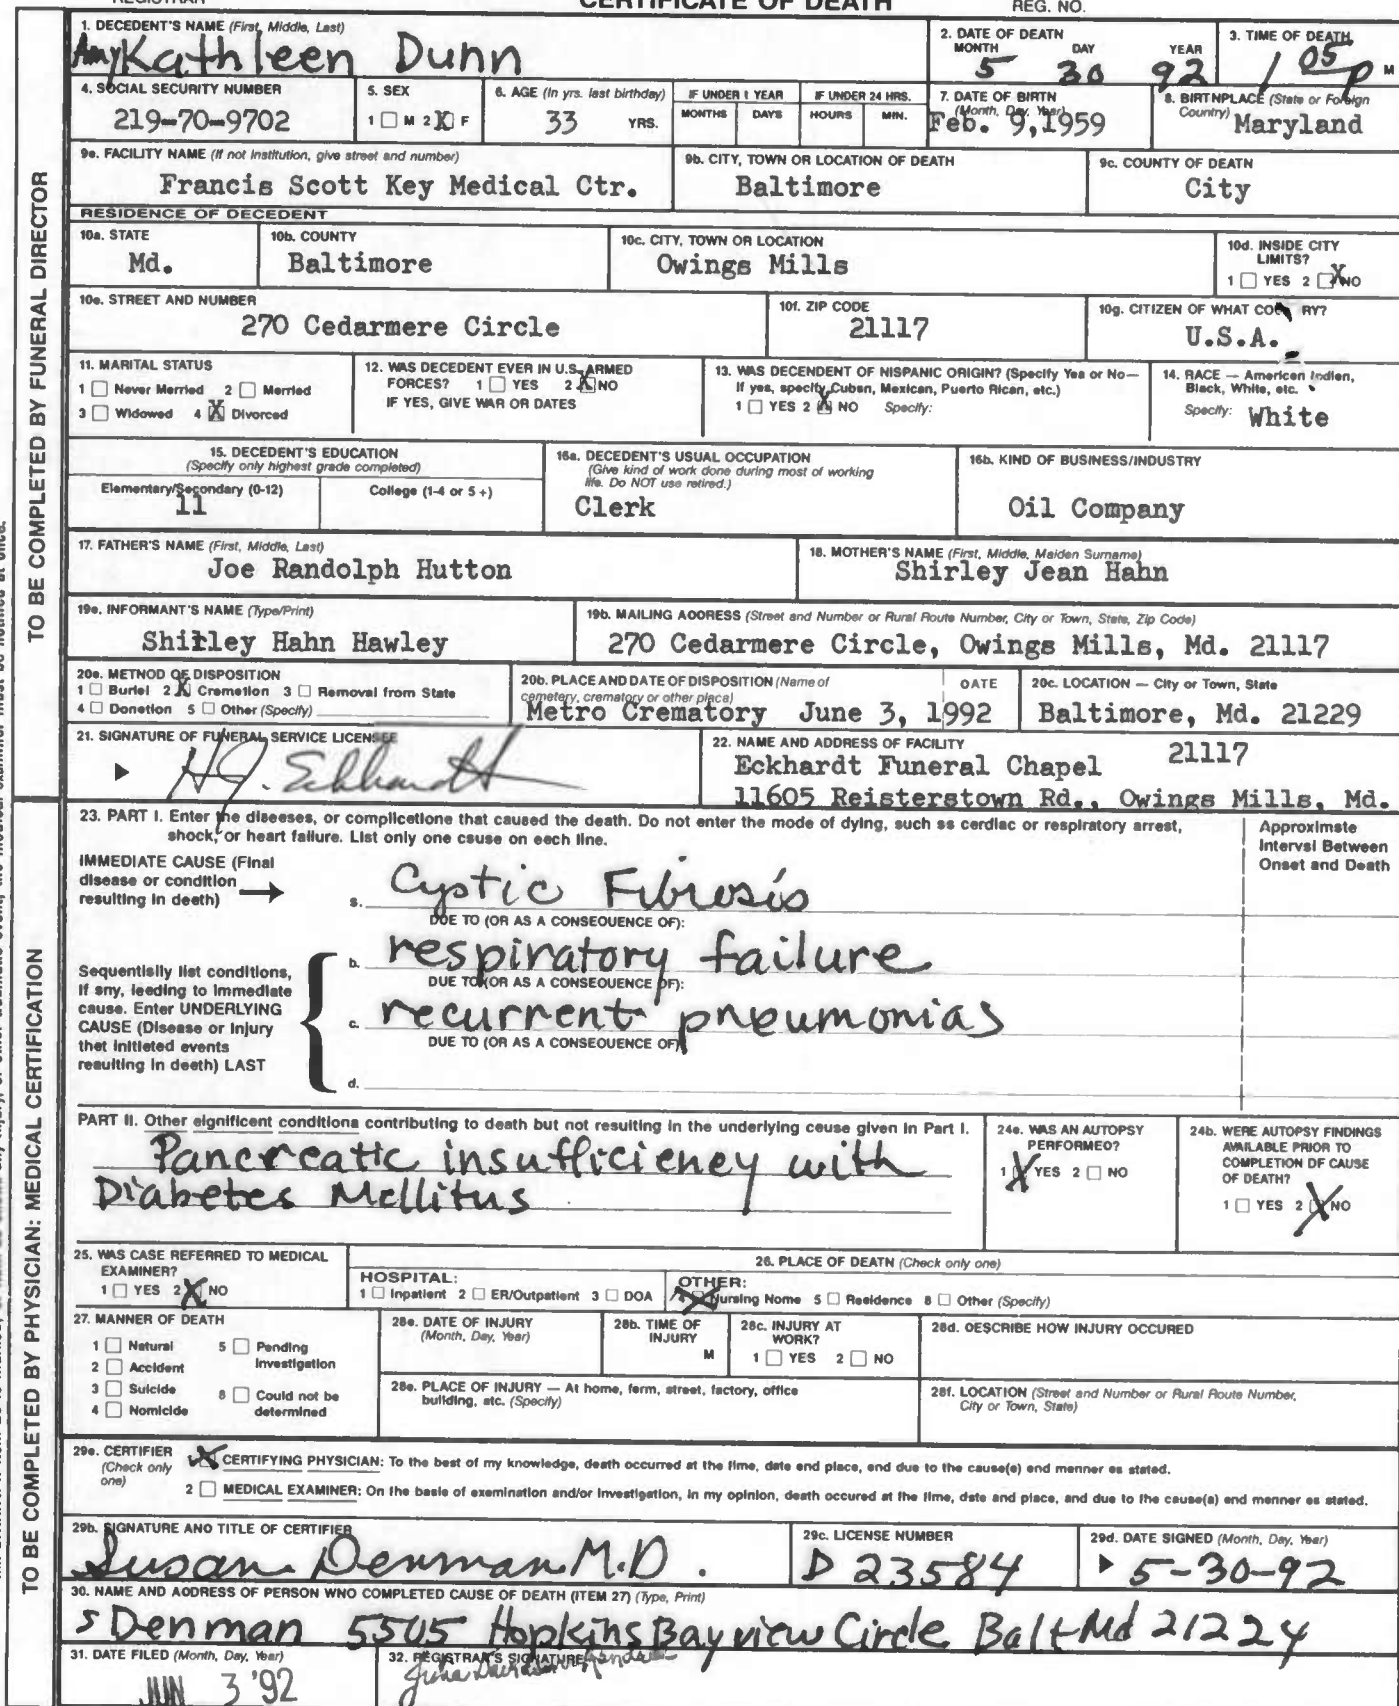 REGISTRAR
CERTIFICATE OF DEATH
REG. NO.
TO BE COMPLETED BY FUNERAL DIRECTOR
1. DECEDENT'S NAME (First, Middle, Last)
Amy Kathleen Dunn
2. DATE OF DEATH
MONTH DAY YEAR
5 30 92
3. TIME OF DEATH
1 05 P M
4. SOCIAL SECURITY NUMBER
219-70-9702
5. SEX
1 M 2 X F
6. AGE (In yrs. last birthday)
33 YRS.
IF UNDER 1 YEAR
MONTHS DAYS
IF UNDER 24 HRS.
HOURS MIN.
7. DATE OF BIRTH
(Month, Day, Year)
Feb. 9,1959
8. BIRTHPLACE (State or Foreign Country)
Maryland
9a. FACILITY NAME (If not institution, give street and number)
Francis Scott Key Medical Ctr.
9b. CITY, TOWN OR LOCATION OF DEATH
Baltimore
9c. COUNTY OF DEATH
City
RESIDENCE OF DECEDENT
10a. STATE
Md.
10b. COUNTY
Baltimore
10c. CITY, TOWN OR LOCATION
Owings Mills
10d. INSIDE CITY LIMITS?
1 YES 2 X NO
10e. STREET AND NUMBER
270 Cedarmere Circle
10f. ZIP CODE
21117
10g. CITIZEN OF WHAT COU RY?
U.S.A.
11. MARITAL STATUS
1 Never Married 2 Married
3 Widowed 4 X Divorced
12. WAS DECEDENT EVER IN U.S. ARMED
FORCES? 1 YES 2 X NO
IF YES, GIVE WAR OR DATES
13. WAS DECENDENT OF HISPANIC ORIGIN? (Specify Yes or No—
If yes, specify Cuban, Mexican, Puerto Rican, etc.)
1 YES 2 X NO Specify:
14. RACE — American Indien,
Bleck, White, etc.
Specify: White
15. DECEDENT'S EDUCATION
(Specify only highest grade completed)
Elementary/Secondary (0-12)
11
College (1-4 or 5+)
16a. DECEDENT'S USUAL OCCUPATION
(Give kind of work done during most of working
life. Do NOT use retired.)
Clerk
16b. KIND OF BUSINESS/INDUSTRY
Oil Company
17. FATHER'S NAME (First, Middle, Last)
Joe Randolph Hutton
18. MOTHER'S NAME (First, Middle, Maiden Surname)
Shirley Jean Hahn
19a. INFORMANT'S NAME (Type/Print)
Shirley Hahn Hawley
19b. MAILING ADDRESS (Street and Number or Rural Route Number, City or Town, State, Zip Code)
270 Cedarmere Circle, Owings Mills, Md. 21117
20a. METHOD OF DISPOSITION
1 Buriel 2 X Cremetion 3 Removal from State
4 Donetion 5 Other (Specify)
20b. PLACE AND DATE OF DISPOSITION (Name of
cemetery, crematory or other place) DATE
Metro Crematory June 3, 1992
20c. LOCATION — City or Town, State
Baltimore, Md. 21229
21. SIGNATURE OF FUNERAL SERVICE LICENSEE
H.J. Eckhardt
22. NAME AND ADDRESS OF FACILITY 21117
Eckhardt Funeral Chapel
11605 Reisterstown Rd., Owings Mills, Md.
TO BE COMPLETED BY PHYSICIAN: MEDICAL CERTIFICATION
23. PART I. Enter the diseeses, or complicetione that caused the death. Do not enter the mode of dying, such ss cerdlac or respiratory arrest,
shock, or heart faflure. List only one csuse on eech line.
Approximste
Intervsl Between
Onset and Death
IMMEDIATE CAUSE (Final
disease or condition
resulting in death)
a. Cystic Fibrosis
DUE TO (OR AS A CONSEOUENCE OF):
b. respiratory failure
DUE TO (OR AS A CONSEOUENCE OF):
c. recurrent pneumonias
DUE TO (OR AS A CONSEOUENCE OF)
d.
Sequentislly list conditions,
if sny, leeding to immediate
cause. Enter UNDERLYING
CAUSE (Disease or injury
thet initieted events
resulting in deeth) LAST
PART II. Other eignificent conditiona contributing to death but not resulting in the underlying ceuse given in Part I.
Pancreatic insufficiency with
Diabetes Mellitus
24a. WAS AN AUTOPSY
PERFORMED?
1 X YES 2 NO
24b. WERE AUTOPSY FINDINGS
AVAILABLE PRIOR TO
COMPLETION OF CAUSE
OF DEATH?
1 YES 2 X NO
25. WAS CASE REFERRED TO MEDICAL
EXAMINER?
1 YES 2 X NO
26. PLACE OF DEATH (Check only one)
HOSPITAL:
1 Inpatient 2 ER/Outpatient 3 DOA
OTHER:
X Nursing Home 5 Residence 6 Other (Specify)
27. MANNER OF DEATH
1 Natural 5 Pending Investigation
2 Accident
3 Suicide 6 Could not be determined
4 Homicide
28a. DATE OF INJURY
(Month, Day, Year)
28b. TIME OF
INJURY
M
28c. INJURY AT
WORK?
1 YES 2 NO
28d. DESCRIBE HOW INJURY OCCURED
28e. PLACE OF INJURY — At home, ferm, street, factory, office
building, etc. (Specify)
28f. LOCATION (Street and Number or Rural Route Number,
City or Town, State)
29a. CERTIFIER
(Check only
one)
X CERTIFYING PHYSICIAN: To the best of my knowledge, death occurred at the time, date end place, end due to the cause(e) end menner es stated.
2 MEDICAL EXAMINER: On the basie of exemination and/or investigation, in my opinion, death occured at the time, date and place, and due to the cause(a) end menner es stated.
29b. SIGNATURE AND TITLE OF CERTIFIER
Susan Denman M.D.
29c. LICENSE NUMBER
D 23584
29d. DATE SIGNED (Month, Day, Year)
5-30-92
30. NAME AND ADDRESS OF PERSON WHO COMPLETED CAUSE OF DEATH (ITEM 27) (Type, Print)
S Denman 5505 Hopkins Bayview Circle Balt Md 21224
31. DATE FILED (Month, Day, Year)
JUN 3 '92
32. REGISTRAR'S SIGNATURE